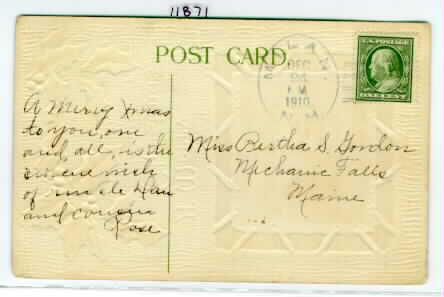 11871
POST CARD.
DEC
1910
A Merry Xmas
to you, one
and, all, is the
sincere wish
of uncle Dan
and cousin
Rose
Miss Bertha S. Gordon
Mechanic Falls
Maine